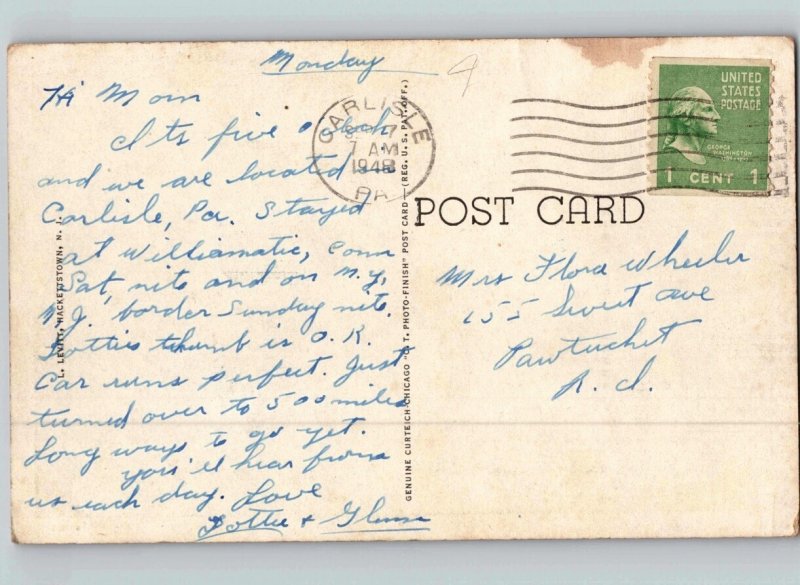 Monday
Hi Mom
Its five o'clock
and we are located
Carlisle, Pa. Stayed
at Williamatic, Conn
Sat, nite and on N.Y,
N.J, border Sunday nite.
Dotties thumb is O.K.
Car runs perfect. Just
turned over to 500 miles
Long ways to go yet.
you'll hear from
us each day. Love
Dottie +
4
CARLISLE
7 AM
1948
PA.
UNITED
STATES
POSTAGE
GEORGE
WASHINGTON
1 CENT 1
POST CARD
Mrs Flora Wheeler
155 Sweet ave
Pawtucket
R. I.
L. LEVITT, HACKETTSTOWN, N. J.
GENUINE CURTEICH-CHICAGO "C.T. PHOTO-FINISH" POST CARD (REG. U. S. PAT. OFF.)